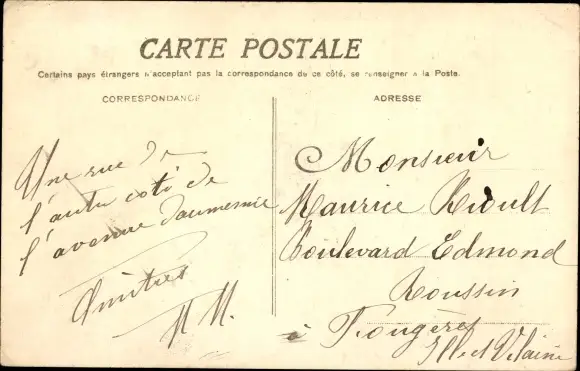 CARTE POSTALE
Certains pays étrangers n'acceptant pas la correspondance de ce côté, se renseigner à la Poste.
CORRESPONDANCE
ADRESSE
Une rue de
l'autre coté de
l'avenue Daumesnil
Amitiés
M.
Monsieur
Maurice Rioult
Boulevard Edmond
Roussin
à Fougères
Ille et Vilaine